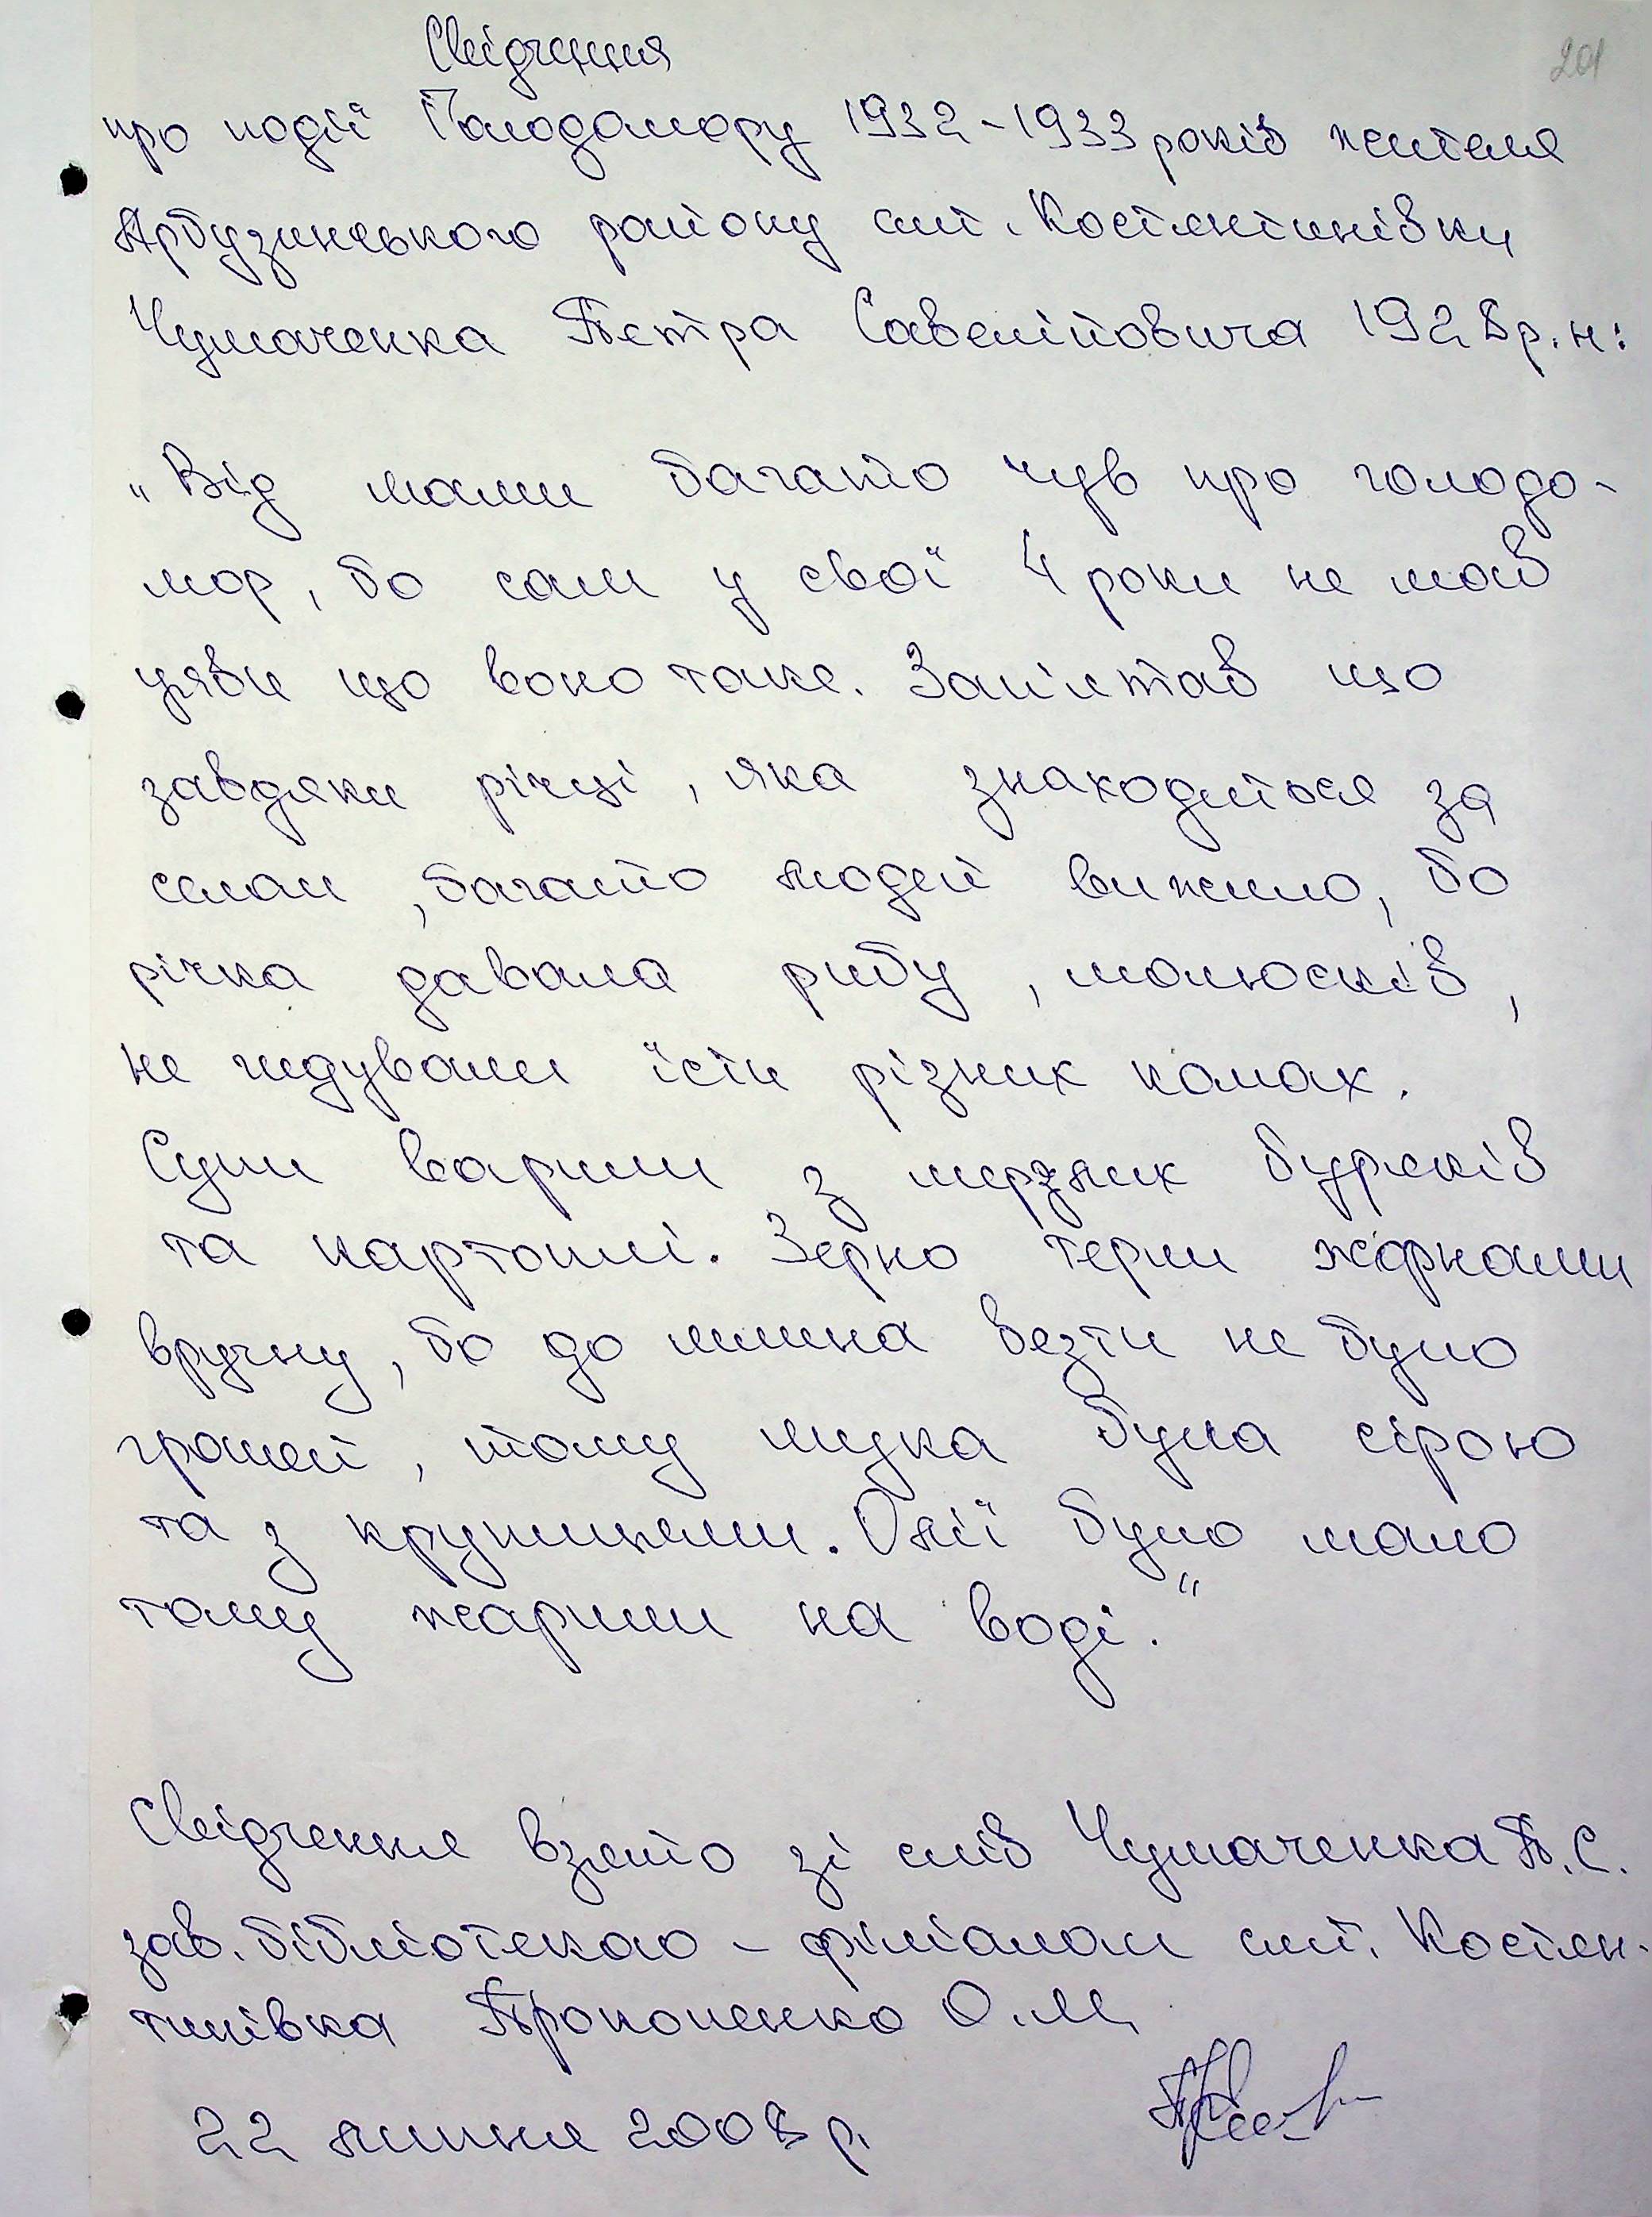 201
Свідчення
про події Голодомору 1932-1933 років жителя
Арбузинського району смт. Костянтинівки
Чумаченка Петра Савелійовича 1928 р.н:
„Від мами багато чув про голодо-
мор, бо сам у свої 4 роки не мав
уяви що воно таке. Запам'ятав що
завдяки річці, яка знаходиться за
селом, багато людей вижило, бо
річка давала рибу, молюсків,
не гидували їсти різних комах.
Супи варили з мерзлих буряків
та картоплі. Зерно терли жорнами
вручну, бо до млина везти не було
грошей, тому мука була сірою
та з крупинками. Олії було мало
тому жарили на воді."
Свідчення взято зі слів Чумаченка П.С.
зав. бібліотекою - філіалом смт. Костян-
тинівка Прокопенко О.М.
22 липня 2008 р.